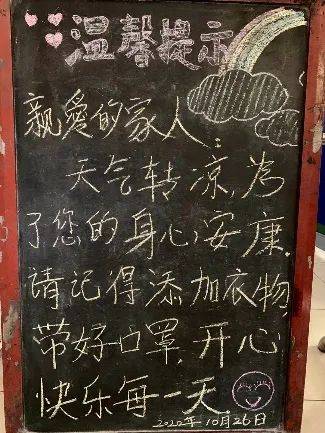 温馨提示
親愛的家人：
天气转凉，为
了您的身心安康，
請记得添加衣物，
带好口罩，开心
快乐每一天
2020年10月26日